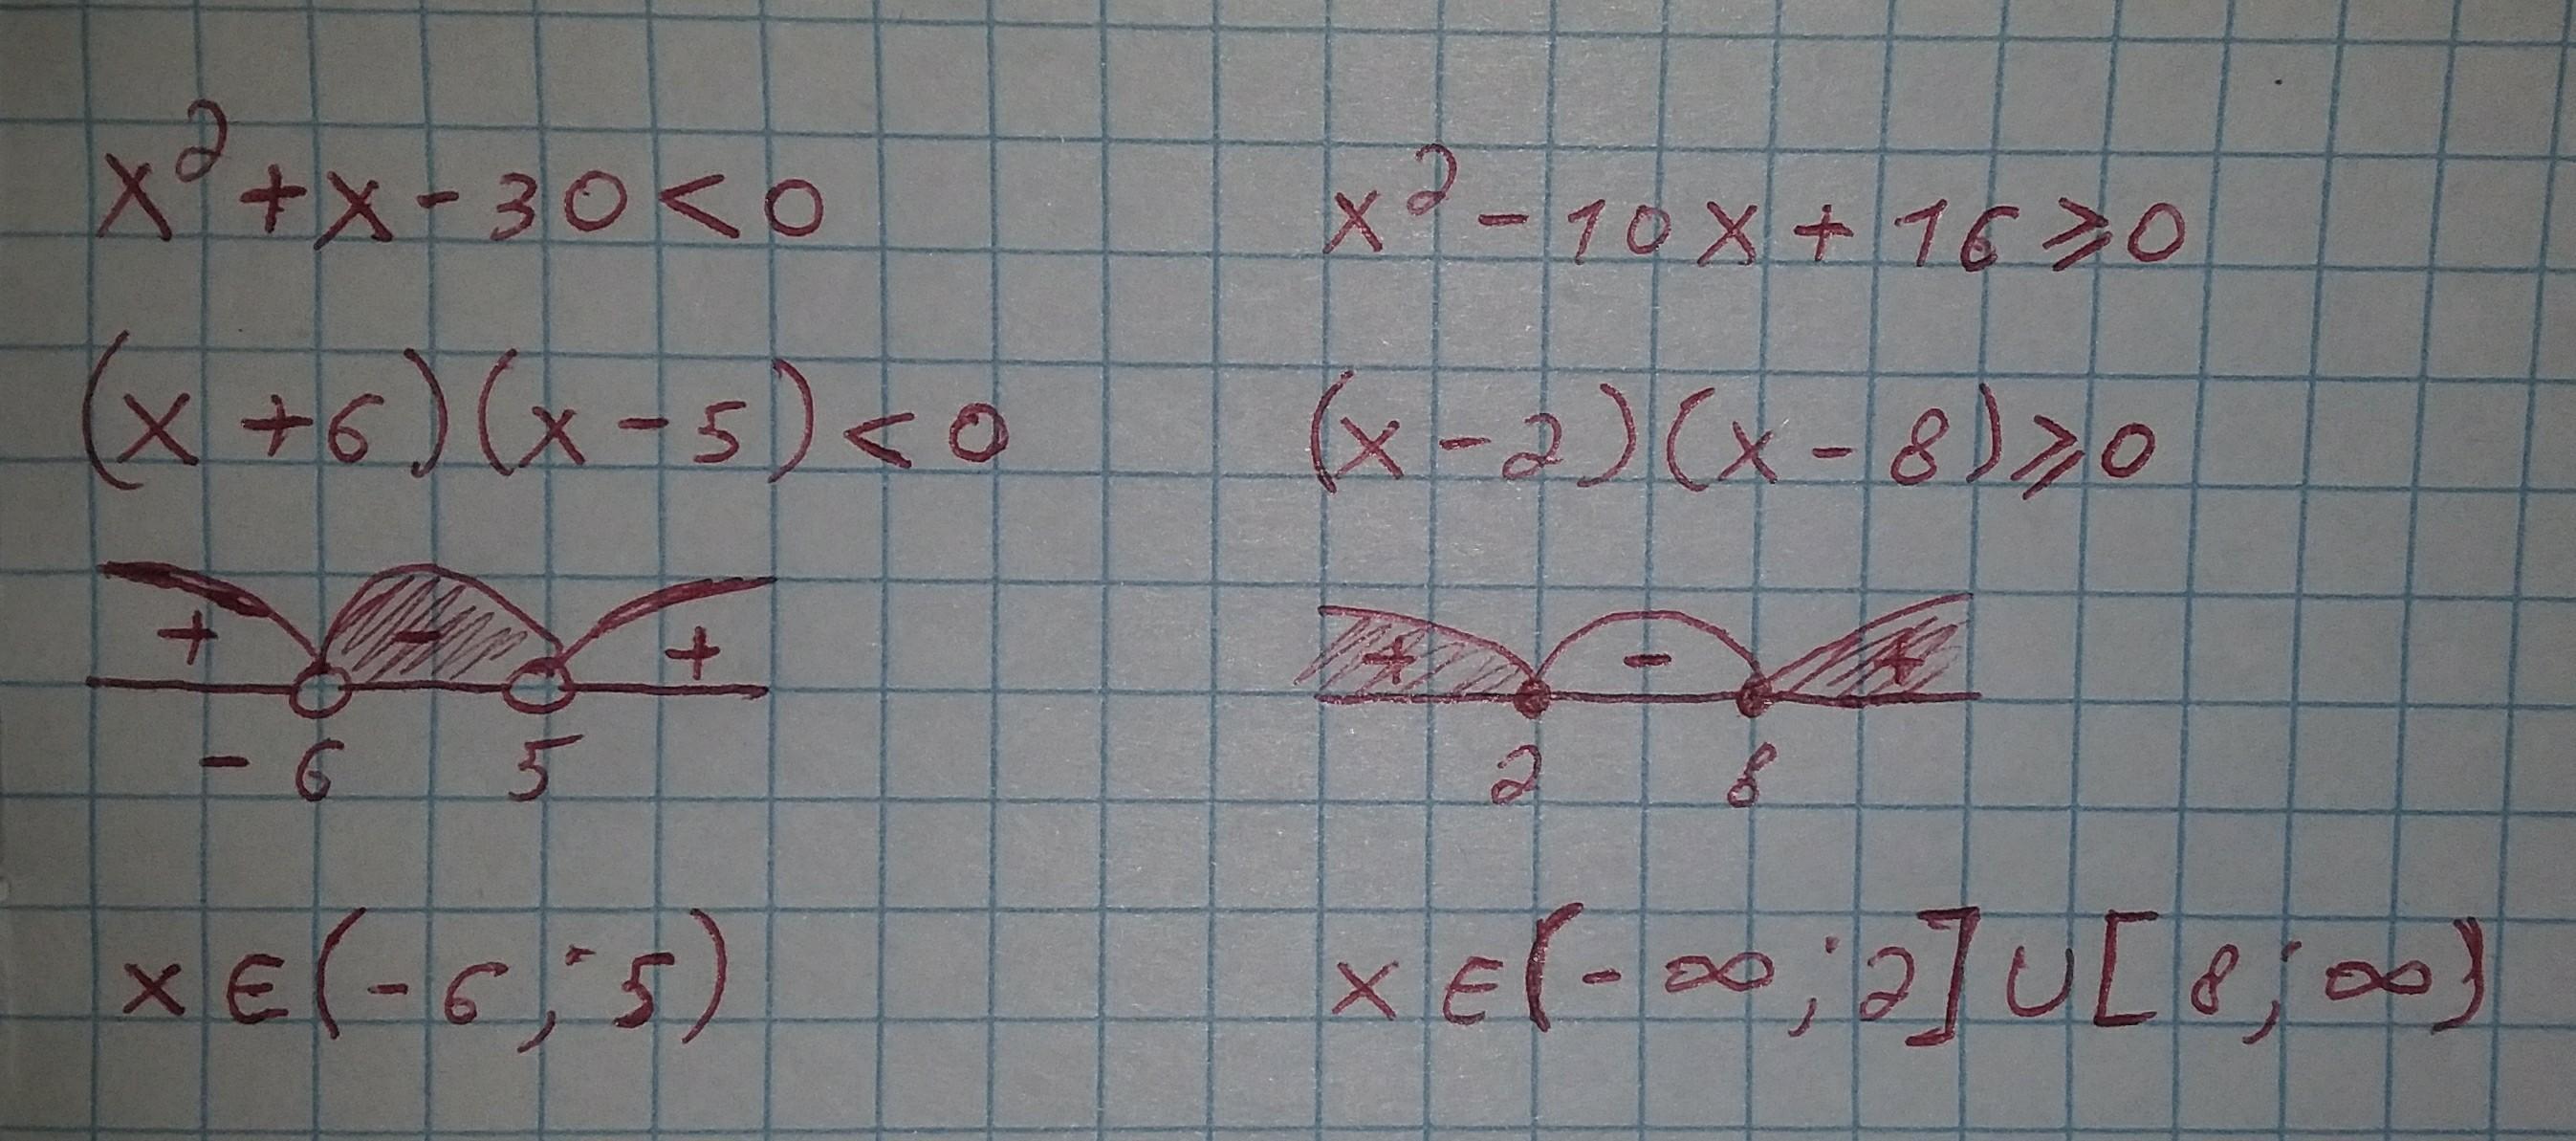 x² + x - 30 < 0
(x + 6)(x - 5) < 0
+ - +
- 6 5
x ∈ (- 6 ; 5)
x² - 10x + 16 ⩾ 0
(x - 2)(x - 8) ⩾ 0
+ - +
2 8
x ∈ (- ∞ ; 2] ∪ [8 ; ∞)